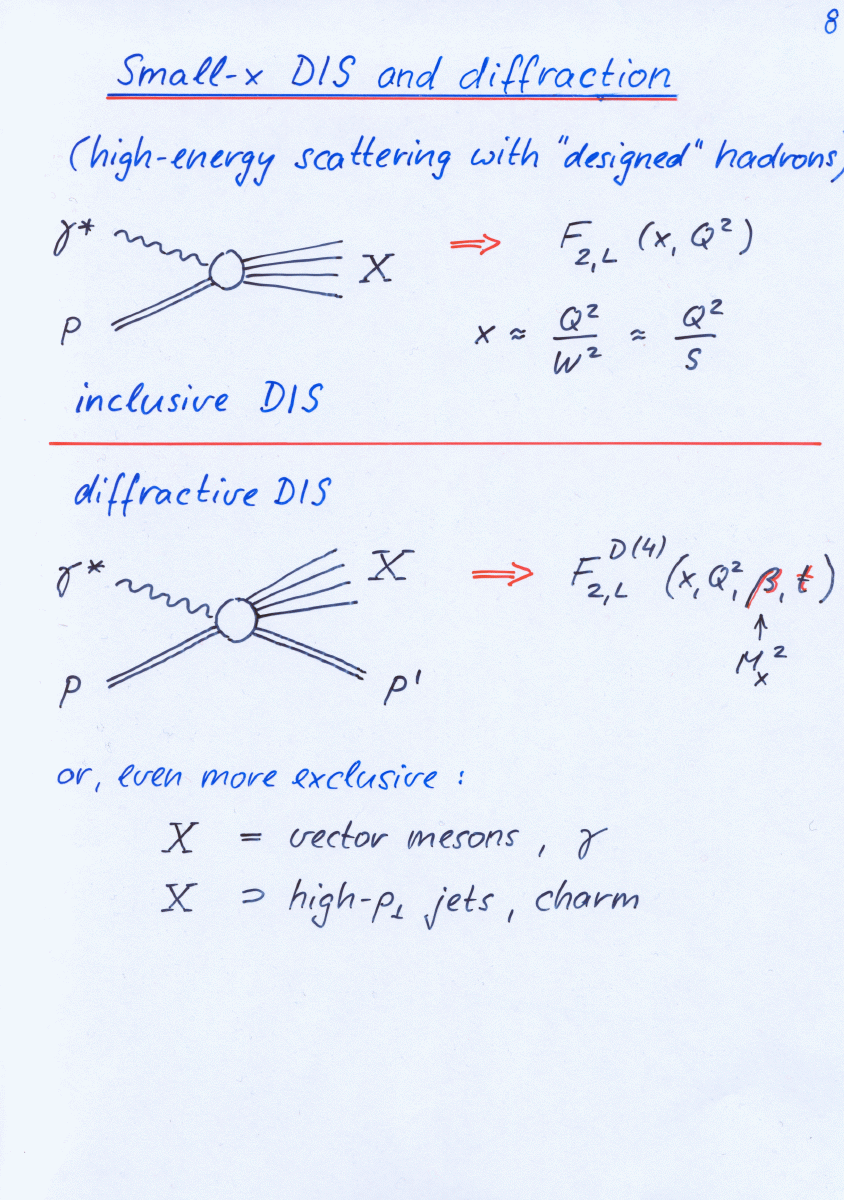 8
Small-x DIS and diffraction
(high-energy scattering with "designed" hadrons)
γ* X ⇒ F_{2,L} (x, Q²)
p x ≈ Q²/W² ≈ Q²/s
inclusive DIS
diffractive DIS
γ* X ⇒ F_{2,L}^{D(4)} (x, Q², β, t)
↑
p p' M_x²
or, even more exclusive :
X = vector mesons , γ
X ⊃ high-p⊥ jets, charm